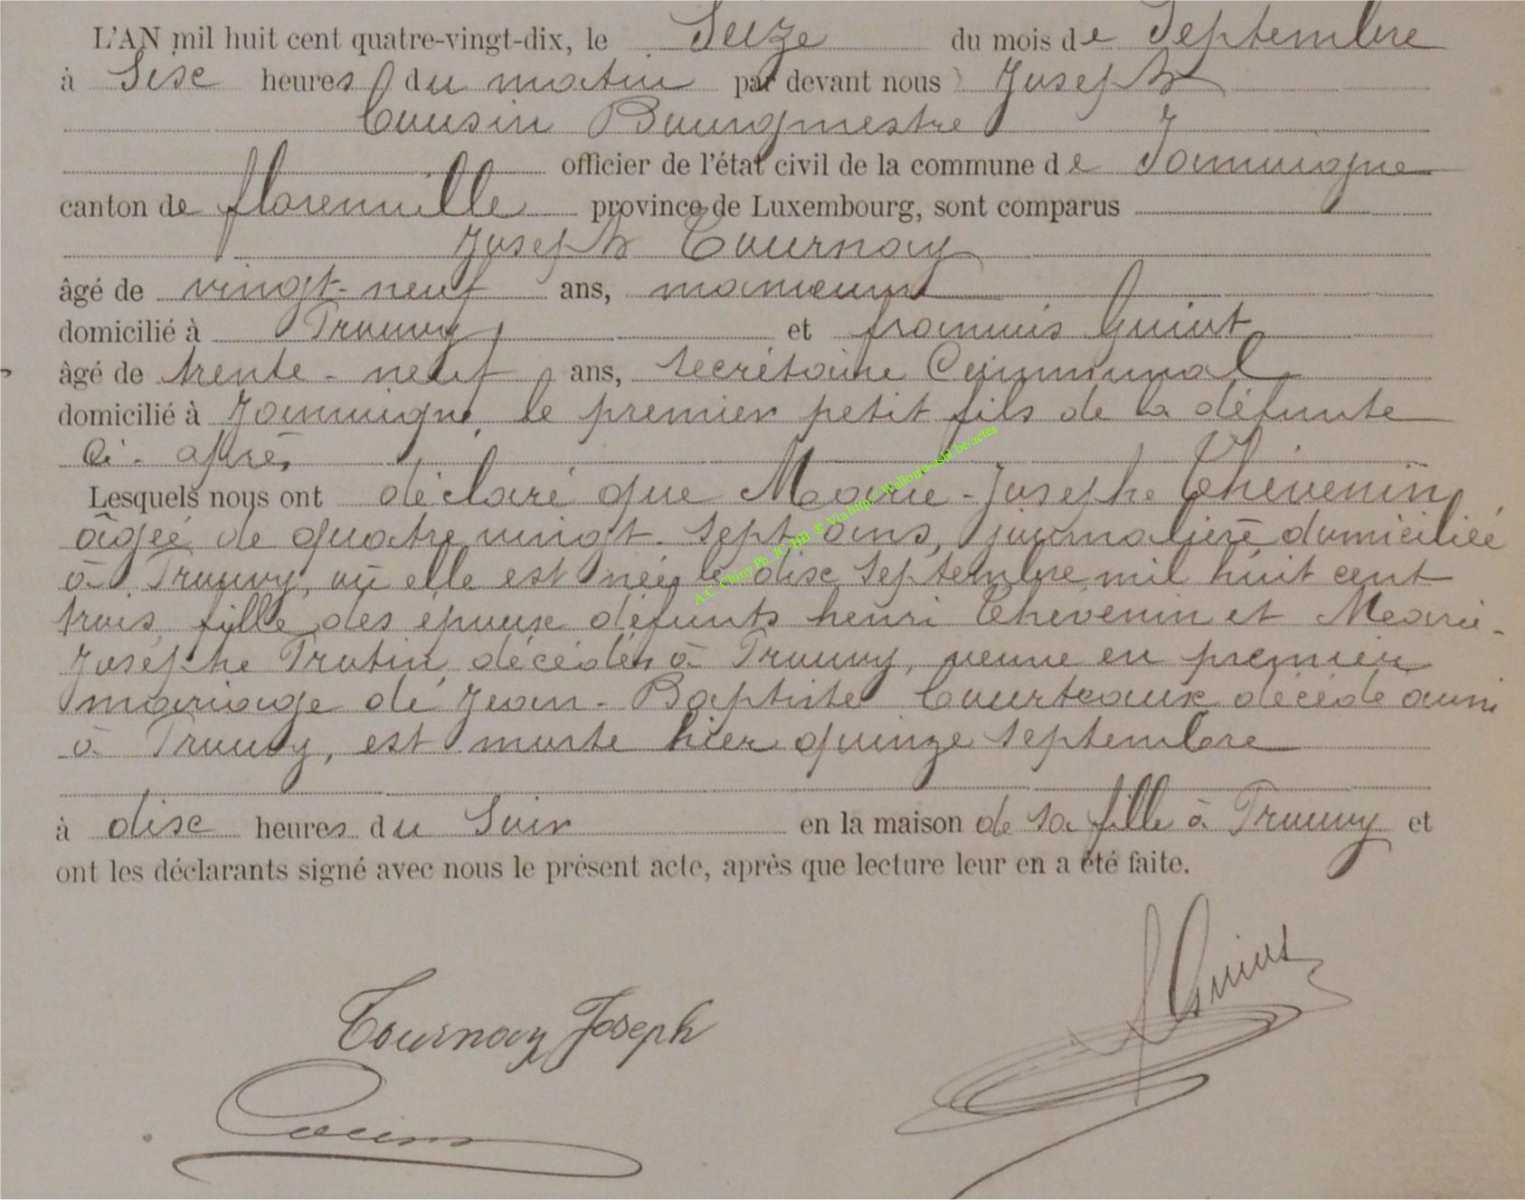 L'AN mil huit cent quatre-vingt-dix, le Seize du mois de Septembre
à Six heures du matin par devant nous Joseph
Cousin Bourgmestre
officier de l'état civil de la commune de Jamoigne
canton de florenville province de Luxembourg, sont comparus
Joseph Tournay
âgé de vingt-neuf ans, manœuvre
domicilié à Prouvy et françois Guiot
âgé de trente-neuf ans, secrétaire Communal
domicilié à Jamoigne, le premier petit fils de la défunte
Ci-après
Lesquels nous ont déclaré que Marie-Josephe Thévenin
âgée de quatre vingt-sept ans, journalière domiciliée
à Prouvy, où elle est née le dix Septembre mil huit cent
trois, fille des époux défunts henri Thevenin et Marie-
Josephe Protin, décédés à Prouvy, veuve en premier
mariage de Jean-Baptiste Courteaux décédé aussi
à Prouvy, est morte hier quinze septembre
à dix heures du Soir en la maison de sa fille à Prouvy et
ont les déclarants signé avec nous le présent acte, après que lecture leur en a été faite.
FGuiot
Tournay Joseph
Cousin